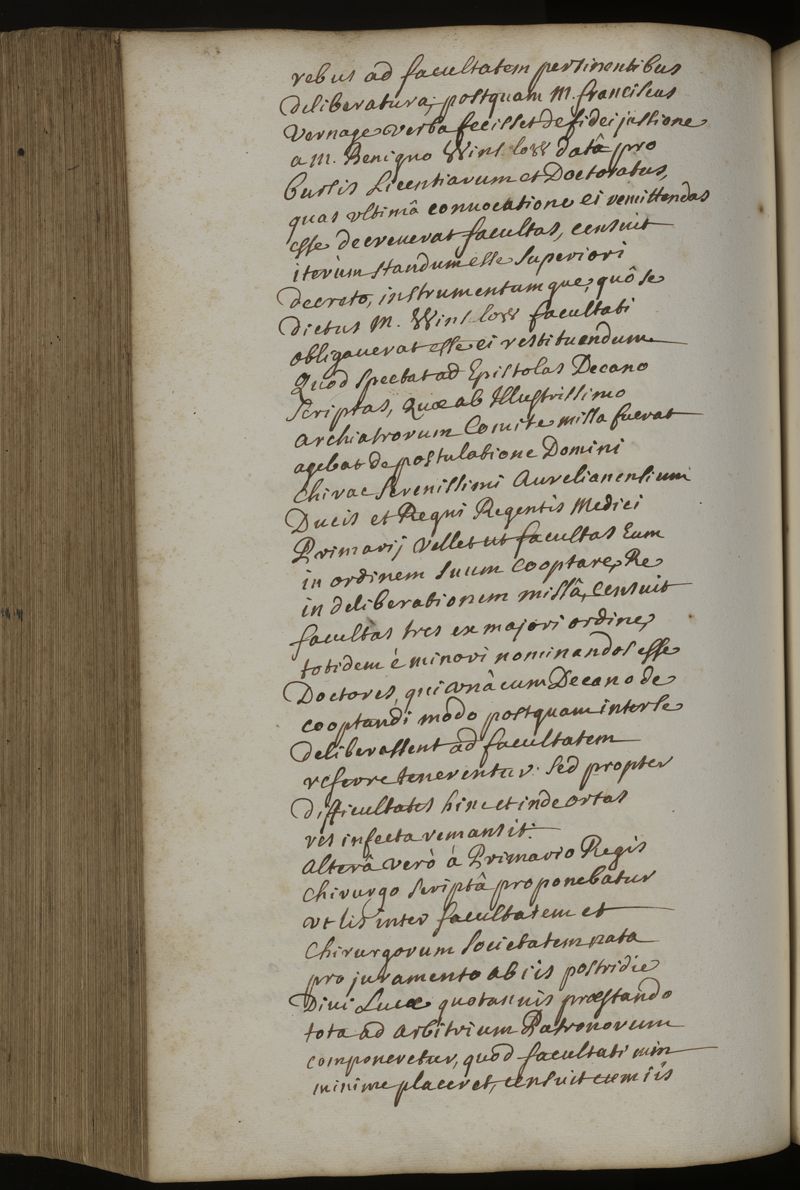 rebus ad facultatem pertinentibus
deliberatura, postquam M. franciscus
Vernage verba fecisset de fidei jussione
a M. Benigno Winslow datâ pro
bursis Licentiarum et Doctoratus,
quas ultimâ convocatione ei remittendas
esse decreverat facultas, censuit
iterùm standum esse superiori
decreto, instrumentumque, quô se
dictus M. Winslow facultati
obligaverat esse ei restituendum
Quod spectat ad Epistolas Decano
scriptas, Quæ ab Illustrissimo
archiatrorum Comite missa fuerat
agebat de postulatione Domini
Chirac serenissimi Aurelianensium
Ducis et Regni Regentis Medici
Primarij vellet ut facultas Eum
in ordinem suum cooptare, Re
in deliberationem missâ, censuit
facultas tres ex majori ordine,
totidem é minori nominandos esse
Doctores, qui vnâ cum Decano de
cooptandi modo postquam inter se
deliberassent ad facultatem
referre tenerentur. Sed propter
difficultates hinc et inde ortas
res infecta remansit.
Alterâ verò á Primario Regis
Chirurgo scriptâ proponebatur
vt lis inter facultatem et
Chirurgorum societatem nata
pro juramento ab iis postridie
Divi Lucæ quotannis præstando
tota ad arbitrium Patronorum
componeretur, quod facultati min
minime placeret, censuit cum iis